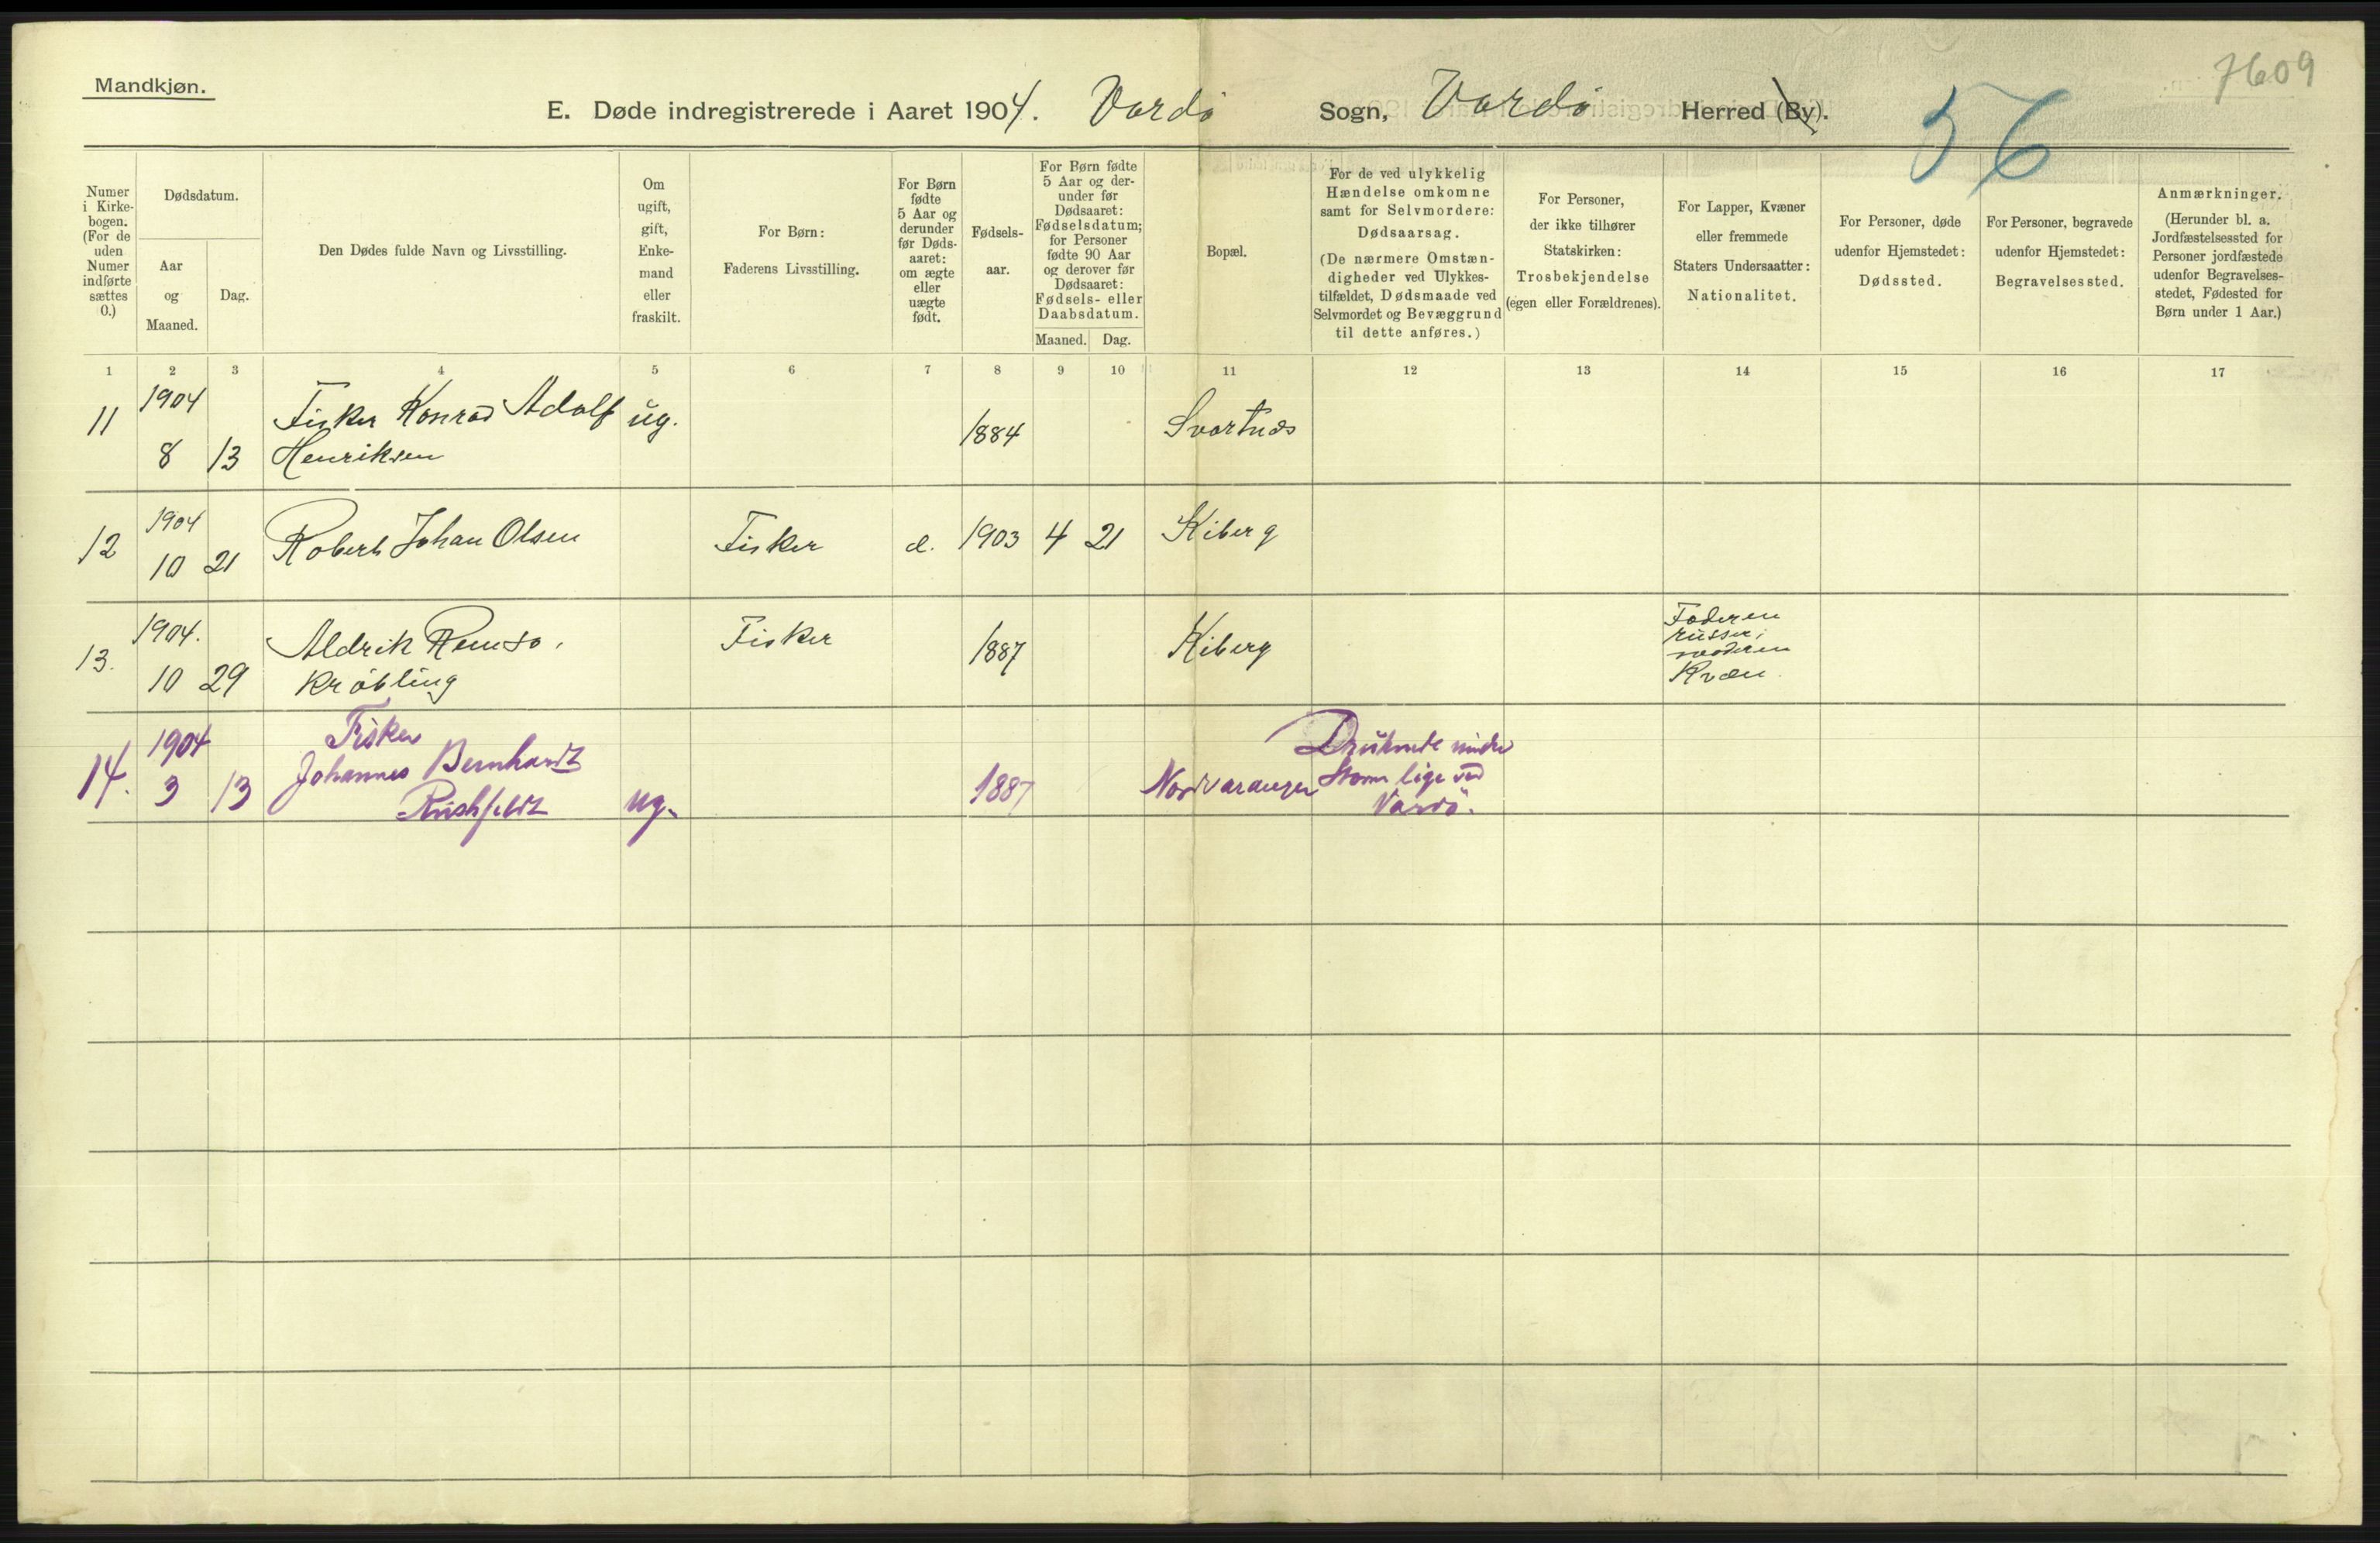 Mandkjøn.
7609
E. Døde indregistrerede i Aaret 1904. Vardø Sogn, Vardø Herred (By).
56
Numer i Kirke-bogen. (For de uden Numer indførte sættes 0.)
Dødsdatum.
Aar og Maaned.
Dag.
Den Dødes fulde Navn og Livsstilling.
Om ugift, gift, Enke-mand eller fraskilt.
For Børn: Faderens Livsstilling.
For Børn fødte 5 Aar og derunder før Døds-aaret: om ægte eller uægte født.
Fødsels-aar.
For Børn fødte 5 Aar og der-under før Dødsaaret: Fødselsdatum; for Personer fødte 90 Aar og derover før Dødsaaret: Fødsels- eller Daabsdatum.
Maaned. Dag.
Bopæl.
For de ved ulykkelig Hændelse omkomne samt for Selvmordere: Dødsaarsag. (De nærmere Omstæn-digheder ved Ulykkes-tilfældet, Dødsmaade ved Selvmordet og Bevæggrund til dette anføres.)
For Personer, der ikke tilhører Statskirken: Trosbekjendelse (egen eller Forældrenes).
For Lapper, Kvæner eller fremmede Staters Undersaatter: Nationalitet.
For Personer, døde udenfor Hjemstedet: Dødssted.
For Personer, begravede udenfor Hjemstedet: Begravelsessted.
Anmærkninger. (Herunder bl. a. Jordfæstelsessted for Personer jordfæstede udenfor Begravelses-stedet, Fødested for Børn under 1 Aar.)
1 2 3 4 5 6 7 8 9 10 11 12 13 14 15 16 17
11 1904 8 13 Fisker Konrad Adolf Henriksen ug. 1884 Svartnæs
12 1904 10 21 Robert Johan Olsen Fisker e. 1903 4 21 Kiberg
13. 1904. 10 29 Aldrik Remso, Krøbling Fisker 1887 Kiberg Faderen russer; moderen Kvæn.
14. 1904 3 13 Fisker Johannes Bernhardt Rushfeldt ug. 1887 Nordvaranger Druknede under Storm lige ved Vardö.